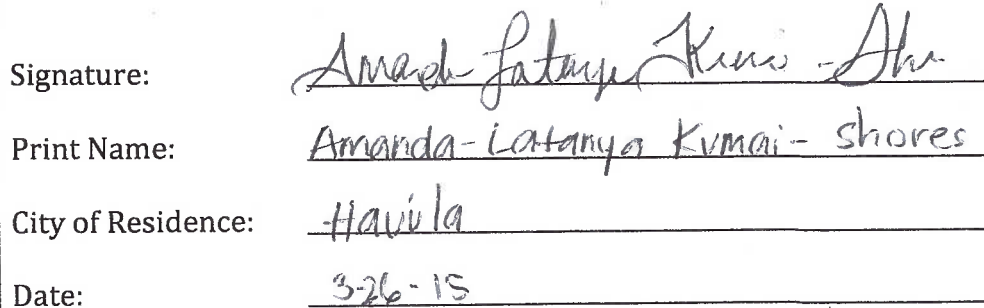 Signature: Amanda Latanya Kumai-Sho
Print Name: Amanda-Latanya Kumai- Shores
City of Residence: Havila
Date: 3-26-15